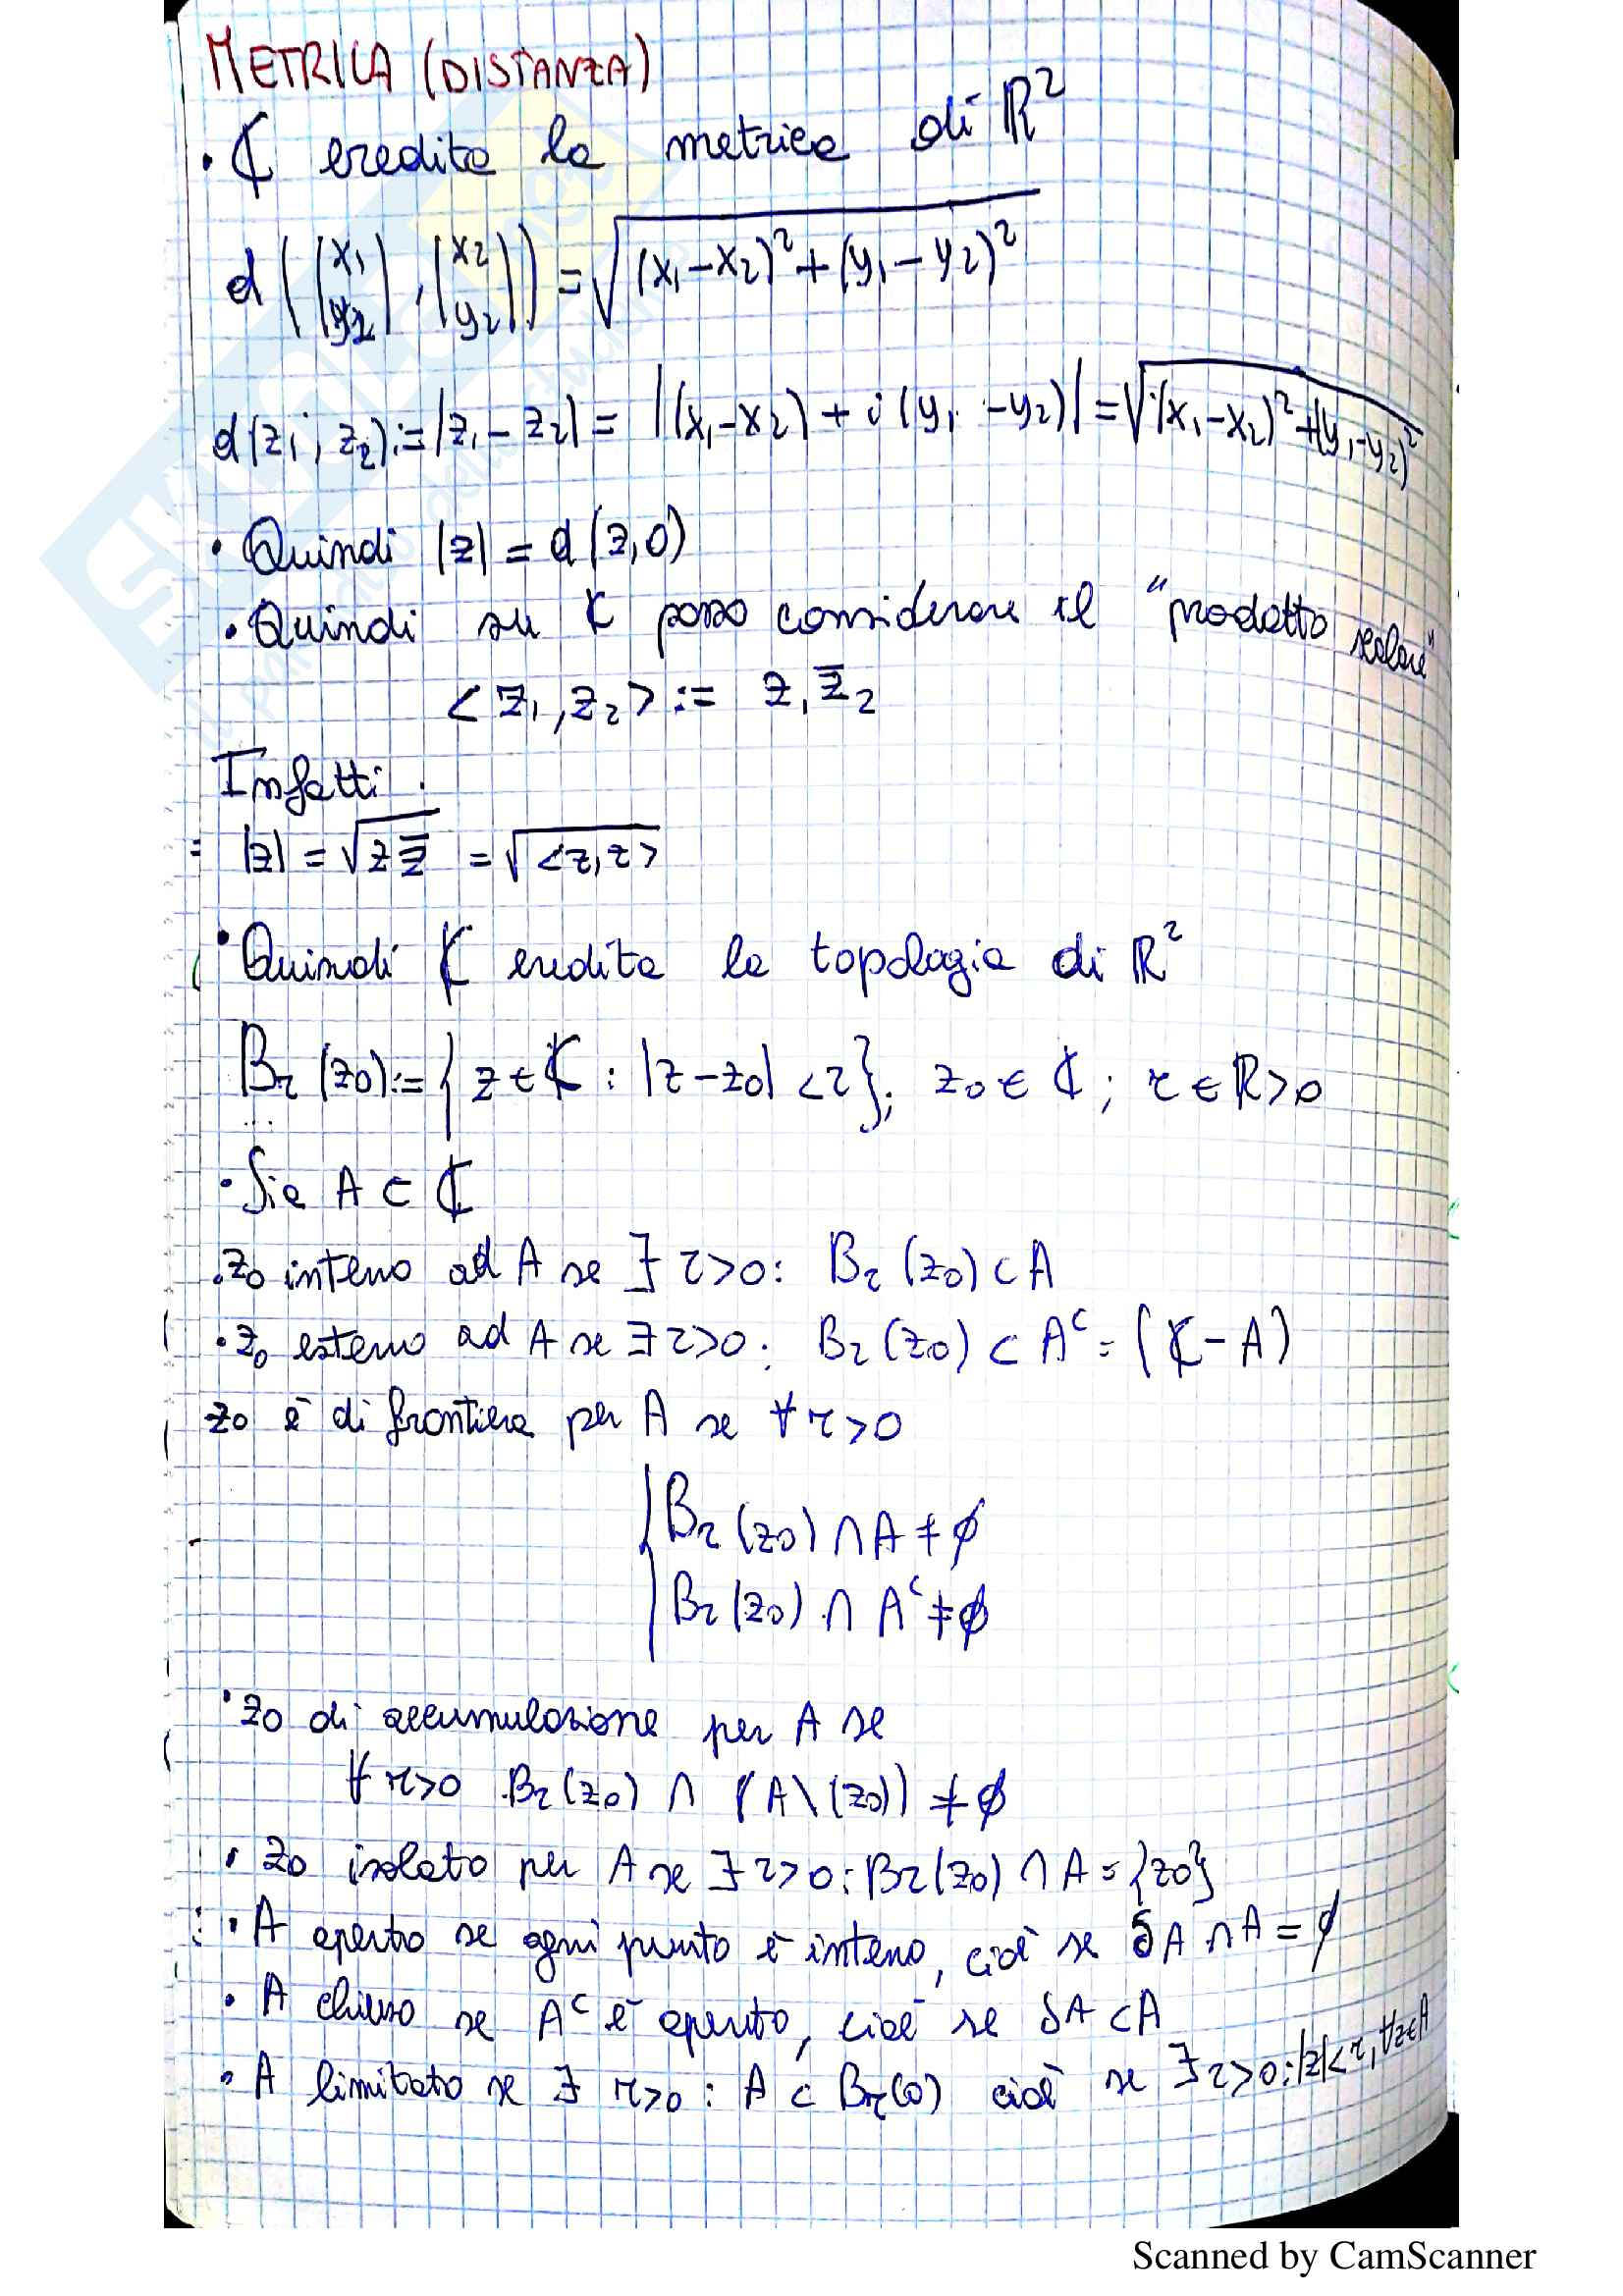 METRICA (DISTANZA)
• ℂ eredita la metrica di ℝ²
d((x₁ y₂), (x₂ y₂)) = √(x₁-x₂)²+(y₁-y₂)²
d(z₁, z₂):=|z₁-z₂| = |(x₁-x₂) + i(y₁-y₂)| = √(x₁-x₂)²+(y₁-y₂)²
• Quindi |z| = d(z,0)
• Quindi su ℂ posso considerare il "prodotto scalare"
<z₁,z₂> := z₁z̅₂
Infatti:
|z| = √zz̅ = √<z,z>
• Quindi ℂ eredita la topologia di ℝ²
Br(z₀):={z∈ℂ: |z-z₀|<r}; z₀∈ℂ; r∈ℝ>0
...
• Sia A⊂ℂ
• z₀ interno ad A se ∃ r>0: Br(z₀)⊂A
• z₀ esterno ad A se ∃ r>0: Br(z₀)⊂Aᶜ=(ℂ-A)
z₀ è di frontiera per A se ∀r>0
{Br(z₀)∩A≠∅
Br(z₀)∩Aᶜ≠∅
• z₀ di accumulazione per A se
∀r>0 Br(z₀)∩(A\(z₀))≠∅
• z₀ isolato per A se ∃ r>0: Br(z₀)∩A={z₀}
• A aperto se ogni punto è interno, cioè se δA∩A=∅
• A chiuso se Aᶜ è aperto, cioè se δA⊂A
• A limitato se ∃ r>0: A⊂Br(0) cioè se ∃r>0:|z|<r, ∀z∈A
Scanned by CamScanner